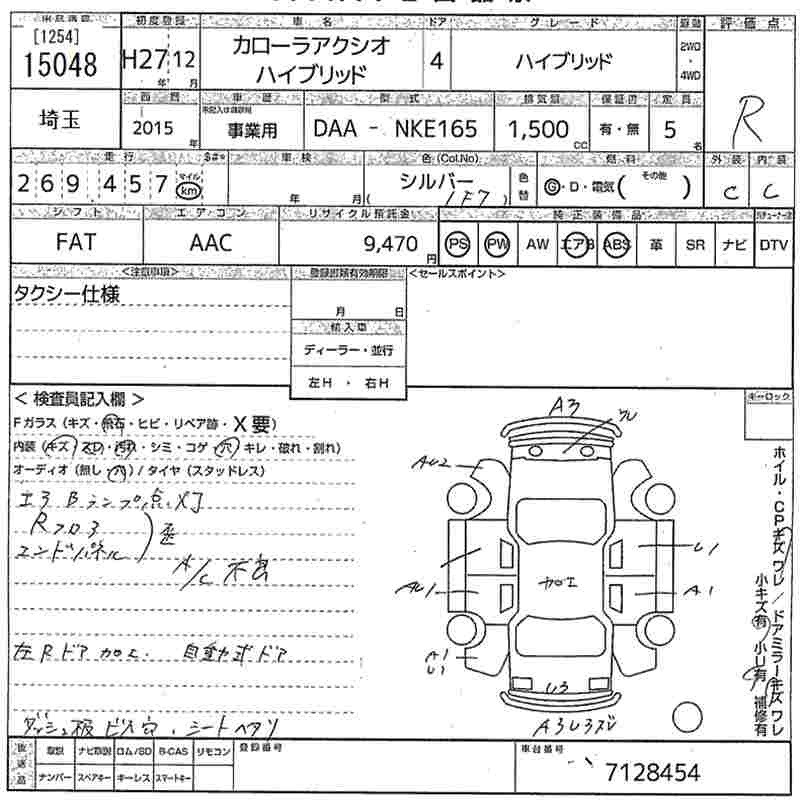 初度登録 車名 ドア グレード 駆動 評価点
[1254]
15048 H27 12 カローラアクシオ ハイブリッド 4 ハイブリッド 2WD・4WD
年 月
埼玉 西暦 車歴 型式 排気量 保証書 定員 R
2015年 事業用 DAA - NKE165 1,500cc 有・無 5名
走行 車検 色(Col.No) 燃料 外装 内装
269457 マイル km 年 月 シルバー (1F7) 色替 G・D・電気( その他 ) C C
シフト エアコン リサイクル預託金 純正装備品
FAT AAC 9,470円 PS PW AW エアB ABS 革 SR ナビ DTV
<注意事項> 登録書類有効期限 <セールスポイント>
タクシー仕様
月 日
輸入車
ディーラー・並行
左H・右H
<検査員記入欄> キーロック
Fガラス(キズ・飛石・ヒビ・リペア跡・X要)
内装(キズ スレ・汚れ・シミ・コゲ・穴・キレ・破れ・割れ)
オーディオ(無し・穴)/タイヤ(スタッドレス)
エアBランプ点灯
Rフロア
エンドパネル
歪
A/C不良
左Rドア加工. 自動式ドア
ダッシュ板ビス穴. シートヘタリ
A3
AU2
U1
AU1 加工 A1
A1
U1
U3
ホイル・CPキズ ワレ/ドアミラーキズ ワレ
小キズ有 小U有 補修有
後送品 取説 ナビ取説 ロム/SD B-CAS リモコン 登録番号 車台番号
ナンバー スペアキー キーレス スマートキー 7128454